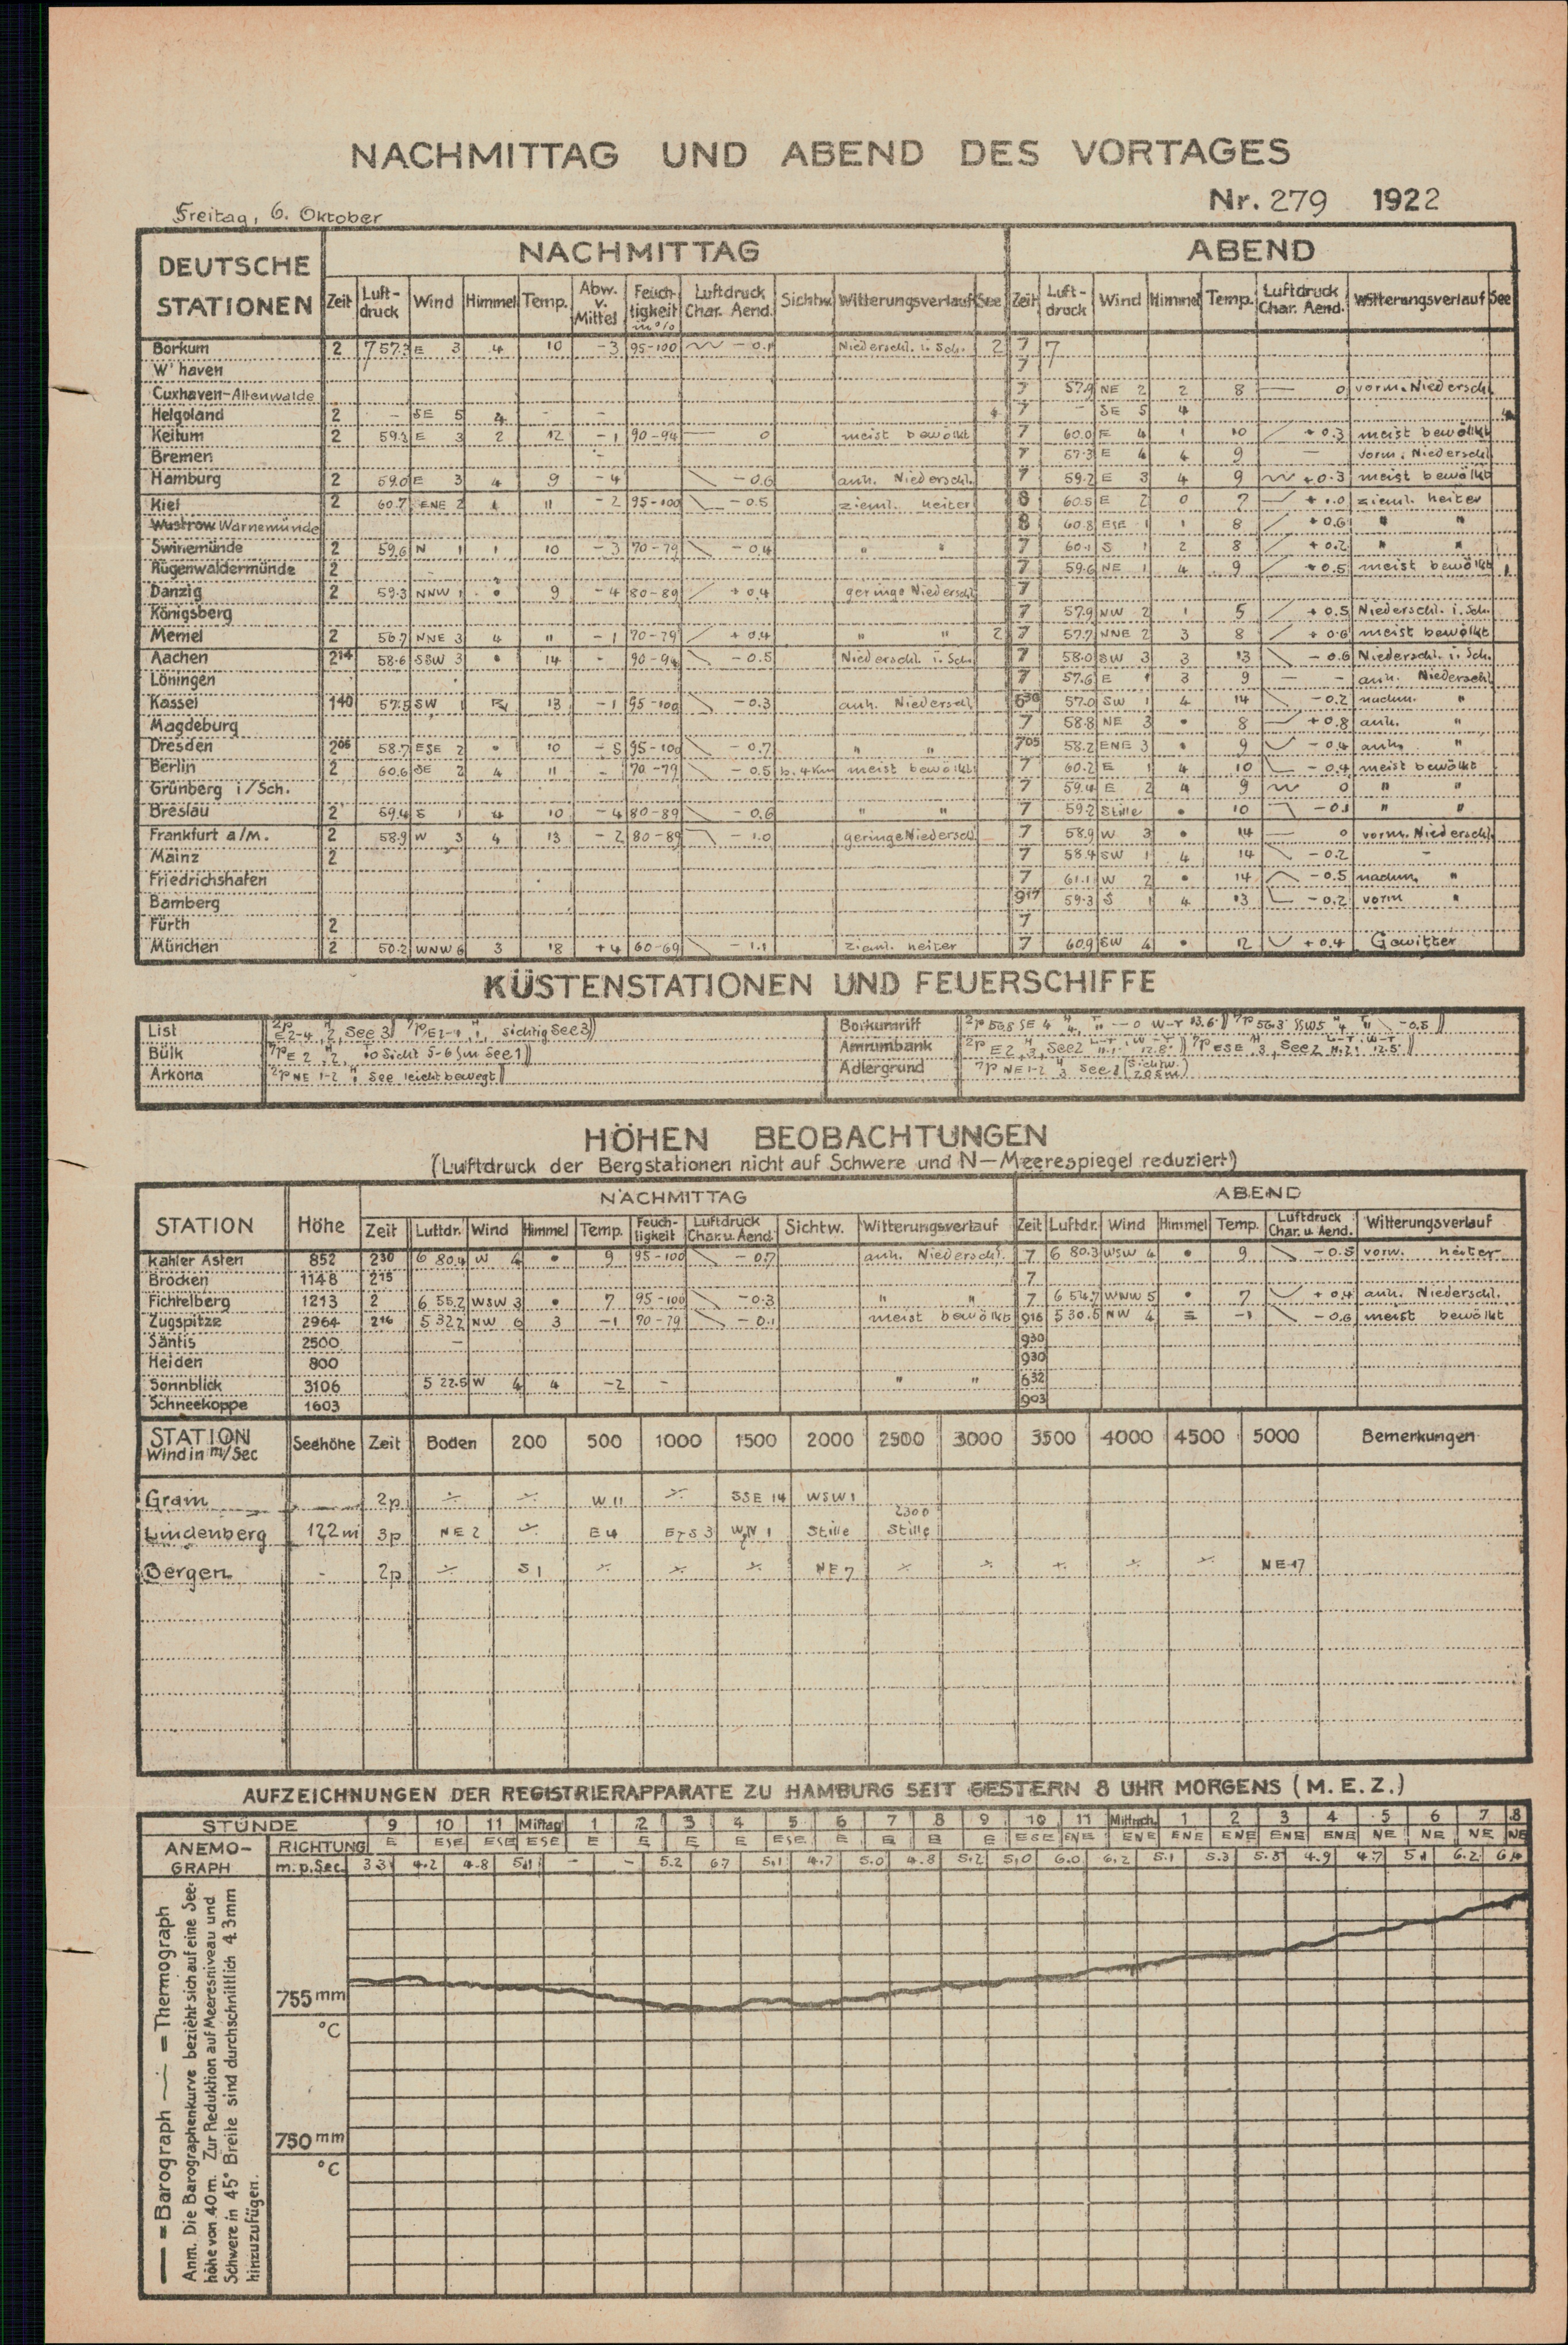 NACHMITTAG UND ABEND DES VORTAGES
Freitag, 6. Oktober
Nr. 279 1922
DEUTSCHE STATIONEN
NACHMITTAG
ABEND
Zeit Luft-druck Wind Himmel Temp. Abw. v. Mittel Feuch-tigkeit in % Luftdruck Char. Aend. Sichtw. Witterungsverlauf See Zeit Luft-druck Wind Himmel Temp. Luftdruck Char. Aend. Witterungsverlauf See
Borkum 2 757.3 E 3 4 10 -3 95-100 -0.1 Niederschl. i. Sch. 2 7 7
W'haven 7
Cuxhaven-Altenwalde 7 57.9 NE 2 2 8 — 0 vorm. Niederschl.
Helgoland 2 - SE 5 4 - - 4 7 - SE 5 4
Keitum 2 E 3 2 12 -1 90-94 — 0 meist bewölkt 7 60.0 E 4 1 10 +0.3 meist bewölkt
Bremen - 7 57.3 E 4 4 9 — vorm. Niederschl.
Hamburg 2 59.0 E 3 4 9 -4 -0.6 anh. Niederschl. 7 59.2 E 3 4 9 +0.3 meist bewölkt
Kiel 2 60.7 ENE 2 11 -2 95-100 -0.5 zieml. heiter 8 60.5 E 2 0 7 +1.0 zieml. heiter
Wustrow Warnemünde 8 60.8 ESE 1 1 8 +0.6 " "
Swinemünde 2 59.6 N 1 1 10 -3 70-79 -0.4 " " 7 60.1 S 1 2 8 +0.2 " "
Rügenwaldermünde 2 7 59.6 NE 1 4 9 +0.5 meist bewölkt 1
Danzig 2 59.3 NNW 1 • 9 -4 80-89 +0.4 geringe Niederschl. 7
Königsberg 7 57.9 NW 2 1 5 +0.5 Niederschl. i. Sch.
Memel 2 56.7 NNE 3 4 11 -1 70-79 +0.4 " " 2 7 57.7 NNE 2 3 8 +0.6 meist bewölkt
Aachen 2 14 58.6 SSW 3 • 14 - 90-94 -0.5 Niederschl. i. Sch. 7 58.0 SW 3 3 13 -0.6 Niederschl. i. Sch.
Löningen 7 57.6 E 1 3 9 — - anh. Niederschl.
Kassel 1 40 57.5 SW 1 13 -1 95-100 -0.3 anh. Niederschl. 6 30 57.0 SW 1 4 14 -0.2 nachm. "
Magdeburg 7 58.8 NE 3 • 8 +0.8 anh. "
Dresden 2 05 58.7 ESE 2 • 10 -5 95-100 -0.7 " " 7 05 58.2 ENE 3 • 9 -0.4 anh. "
Berlin 2 60.6 SE 2 4 11 - 70-79 -0.5 b. 4 Km meist bewölkt 7 60.2 E 1 4 10 -0.4 meist bewölkt
Grünberg i/Sch. 7 59.4 E 2 4 9 0 " "
Breslau 2 59.4 S 1 4 10 -4 80-89 -0.6 " " 7 59.2 Stille • 10 -0.1 " "
Frankfurt a/M. 2 58.9 W 3 4 13 -2 80-89 -1.0 geringe Niederschl. 7 58.9 W 3 • 14 — 0 vorm. Niederschl.
Mainz 2 7 58.4 SW 1 4 14 -0.2 -
Friedrichshafen 7 61.1 W 2 • 14 -0.5 nachm. "
Bamberg 9 17 59.3 S 1 4 13 -0.2 vorm "
Fürth 2 7
München 2 50.2 WNW 6 3 18 +4 60-69 -1.1 zieml. heiter 7 60.9 SW 4 • 12 +0.4 Gewitter
KÜSTENSTATIONEN UND FEUERSCHIFFE
List 2p E2-4, 2, See 3 7p sichtig See 3
Bülk 7p E 2 Sicht 5-6 Sm See 1
Arkona 2p NE 1-2 See leicht bewegt
Borkumriff 2p 56.8 SE 4 W-T 13.6 7p 56.3 SSW 5 -0.5
Amrumbank 2p E 2, 3, See 2 7p ESE, 3, See 2 12.5
Adlergrund 7p NE 1-2 3 See 1 Sichtw. 20 Sm
HÖHEN BEOBACHTUNGEN
(Luftdruck der Bergstationen nicht auf Schwere und N-Meerespiegel reduziert)
STATION Höhe
NACHMITTAG
ABEND
Zeit Luftdr. Wind Himmel Temp. Feuch-tigkeit Luftdruck Char. u. Aend. Sichtw. Witterungsverlauf Zeit Luftdr. Wind Himmel Temp. Luftdruck Char. u. Aend. Witterungsverlauf
Kahler Asten 852 2 30 6 80.4 W 4 • 9 95-100 -0.7 anh. Niederschl. 7 6 80.3 WSW 4 • 9 -0.5 vorw. heiter
Brocken 1148 2 15 7
Fichtelberg 1213 2 6 55.2 WSW 3 • 7 95-100 -0.3 " " 7 6 54.7 WNW 5 • 7 +0.4 anh. Niederschl.
Zugspitze 2964 2 16 5 32.2 NW 6 3 -1 70-79 -0.1 meist bewölkt 9 16 5 30.5 NW 4 ≡ -1 -0.6 meist bewölkt
Säntis 2500 — 9 30
Heiden 800 9 30
Sonnblick 3106 5 22.5 W 4 4 -2 - " " 6 32
Schneekoppe 1603 9 03
STATION Wind in m/Sec Seehöhe Zeit Boden 200 500 1000 1500 2000 2500 3000 3500 4000 4500 5000 Bemerkungen
Grain — 2p ÷ ÷ W 11 ÷ SSE 14 WSW 1
2300
Lindenberg 122 m 3p NE 2 ÷ E 4 EzS 3 Stille Stille
Bergen - 2p ÷ S 1 ÷ ÷ ÷ NE 7 ÷ ÷ ÷ ÷ ÷ NE 17
AUFZEICHNUNGEN DER REGISTRIERAPPARATE ZU HAMBURG SEIT GESTERN 8 UHR MORGENS (M.E.Z.)
STUNDE 9 10 11 Mittag 1 2 3 4 5 6 7 8 9 10 11 Mittnch. 1 2 3 4 5 6 7 8
ANEMO-GRAPH RICHTUNG E ESE ESE ESE E E E E ESE E E E E ESE ENE ENE ENE ENE ENE ENE NE NE NE NE
m. p. Sec. 3.3 4.2 4.8 5.1 - - 5.2 6.7 5.1 4.7 5.0 4.8 5.2 5.0 6.0 6.2 5.1 5.3 5.8 4.9 4.7 5.1 6.2 6.4
755 mm
°C
750 mm
°C
— = Barograph ~ = Thermograph
Anm. Die Barographenkurve bezieht sich auf eine See-
höhe von 40 m. Zur Reduktion auf Meeresniveau und
Schwere in 45° Breite sind durchschnittlich 4.3 mm
hinzuzufügen.